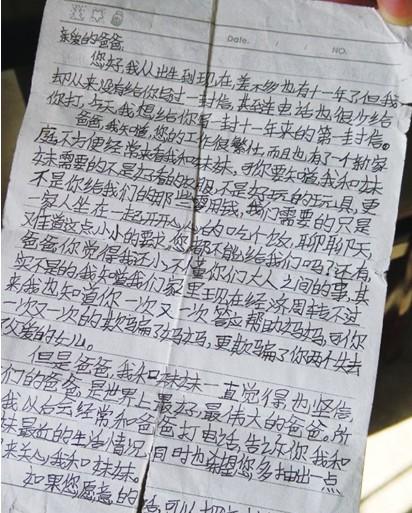 Date: / / NO.
亲爱的爸爸
您好,我从出生到现在,差不多也有十一年了但我
却从来没有给你写过一封信,甚至连电话也很少给
你打,今天,我想给你写一封十一年来的第一封信。
爸爸,我知道,您的工作很繁忙,而且也有了一个新家
庭不方便经常来看我和妹妹,可你要知道,我和妹
妹需要的不是好看的衣服,不是好玩的玩具,更
不是你给我们的那些零用钱,我们需要的只是
一家人坐在一起开开心心的吃个饭,聊聊天
又难道这点小小的要求,您都不能给我们吗?还有,
爸爸你觉得我还小不懂你们大人之间的事,其
实不是的我知道我们家里现在经济周转不过
来我也知道你一次又一次答应帮助妈妈,可你
一次又一次的欺骗了妈妈,更欺骗了你两个失去
父爱的女儿。
但是爸爸,我和妹妹一直觉得也坚信
们的爸爸,是世界上最好,最伟大的爸爸。所
我以后会经常和爸爸打电话,告诉你我和
妹最近的生活情况,同时也希望您多抽出一点
来关心我和妹妹。
如果您愿意的